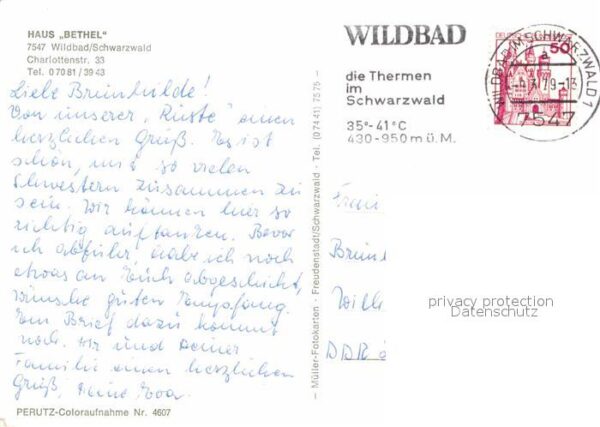 HAUS „BETHEL"
7547 Wildbad/Schwarzwald
Charlottenstr. 33
Tel. 0 70 81 / 39 43
Liebe Brunhilde!
Von unserer „Rüste" einen
herzlichen Gruß. Es ist
schön, mit so vielen
Schwestern zusammen zu
sein. Wir können hier so
richtig auftanken. Bevor
ich abfuhr, habe ich noch
etwas an Euch abgeschickt,
wünsche guten Empfang.
Ein Brief dazu kommt
noch. Dir und Deiner
Familie einen herzlichen
Gruß, Deine Eva
PERUTZ-Coloraufnahme Nr. 4607
– Müller-Fotokarten - Freudenstadt/Schwarzwald - Tel. (07441) 7579 –
WILDBAD
die Thermen
im
Schwarzwald
35°-41°C
430-950 m ü. M.
50
WILDBAD IM SCHWARZWALD 1
a
79-13
7547
Brun
DDR
privacy protection
Datenschutz